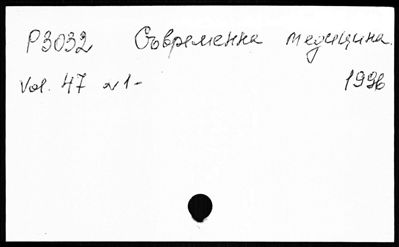 P3032 Съвременна медицина.
Vol. 47 N1- 1996